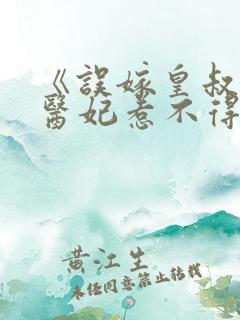 《誤嫁皇叔
醫妃惹不得
黄江生
未经同意禁止转载